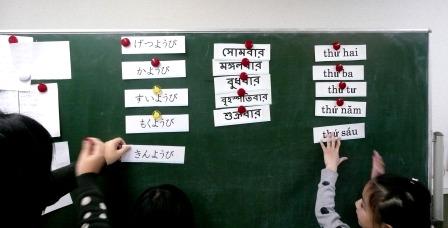 げつようび
かようび
すいようび
もくようび
きんようび
সোমবার
মঙ্গলবার
বুধবার
বৃহস্পতিবার
শুক্রবার
thứ hai
thứ ba
thứ tư
thứ năm
thứ sáu